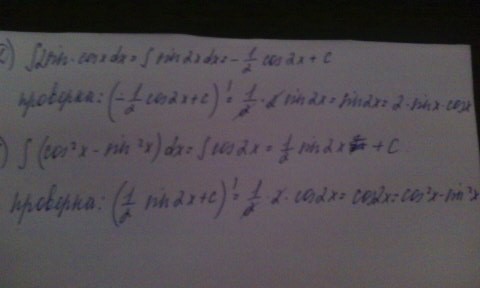 ) ∫2sin·cosxdx=∫sin2xdx=-1/2 cos2x+c
проверка: (-1/2 cos2x+c)'=1/2·2 sin2x=sin2x=2·sinx·cosx
) ∫(cos²x-sin²x)dx=∫cos2x=1/2 sin2x+C
проверка: (1/2 sin2x+c)'=1/2·2·cos2x=cos2x=cos²x-sin²x